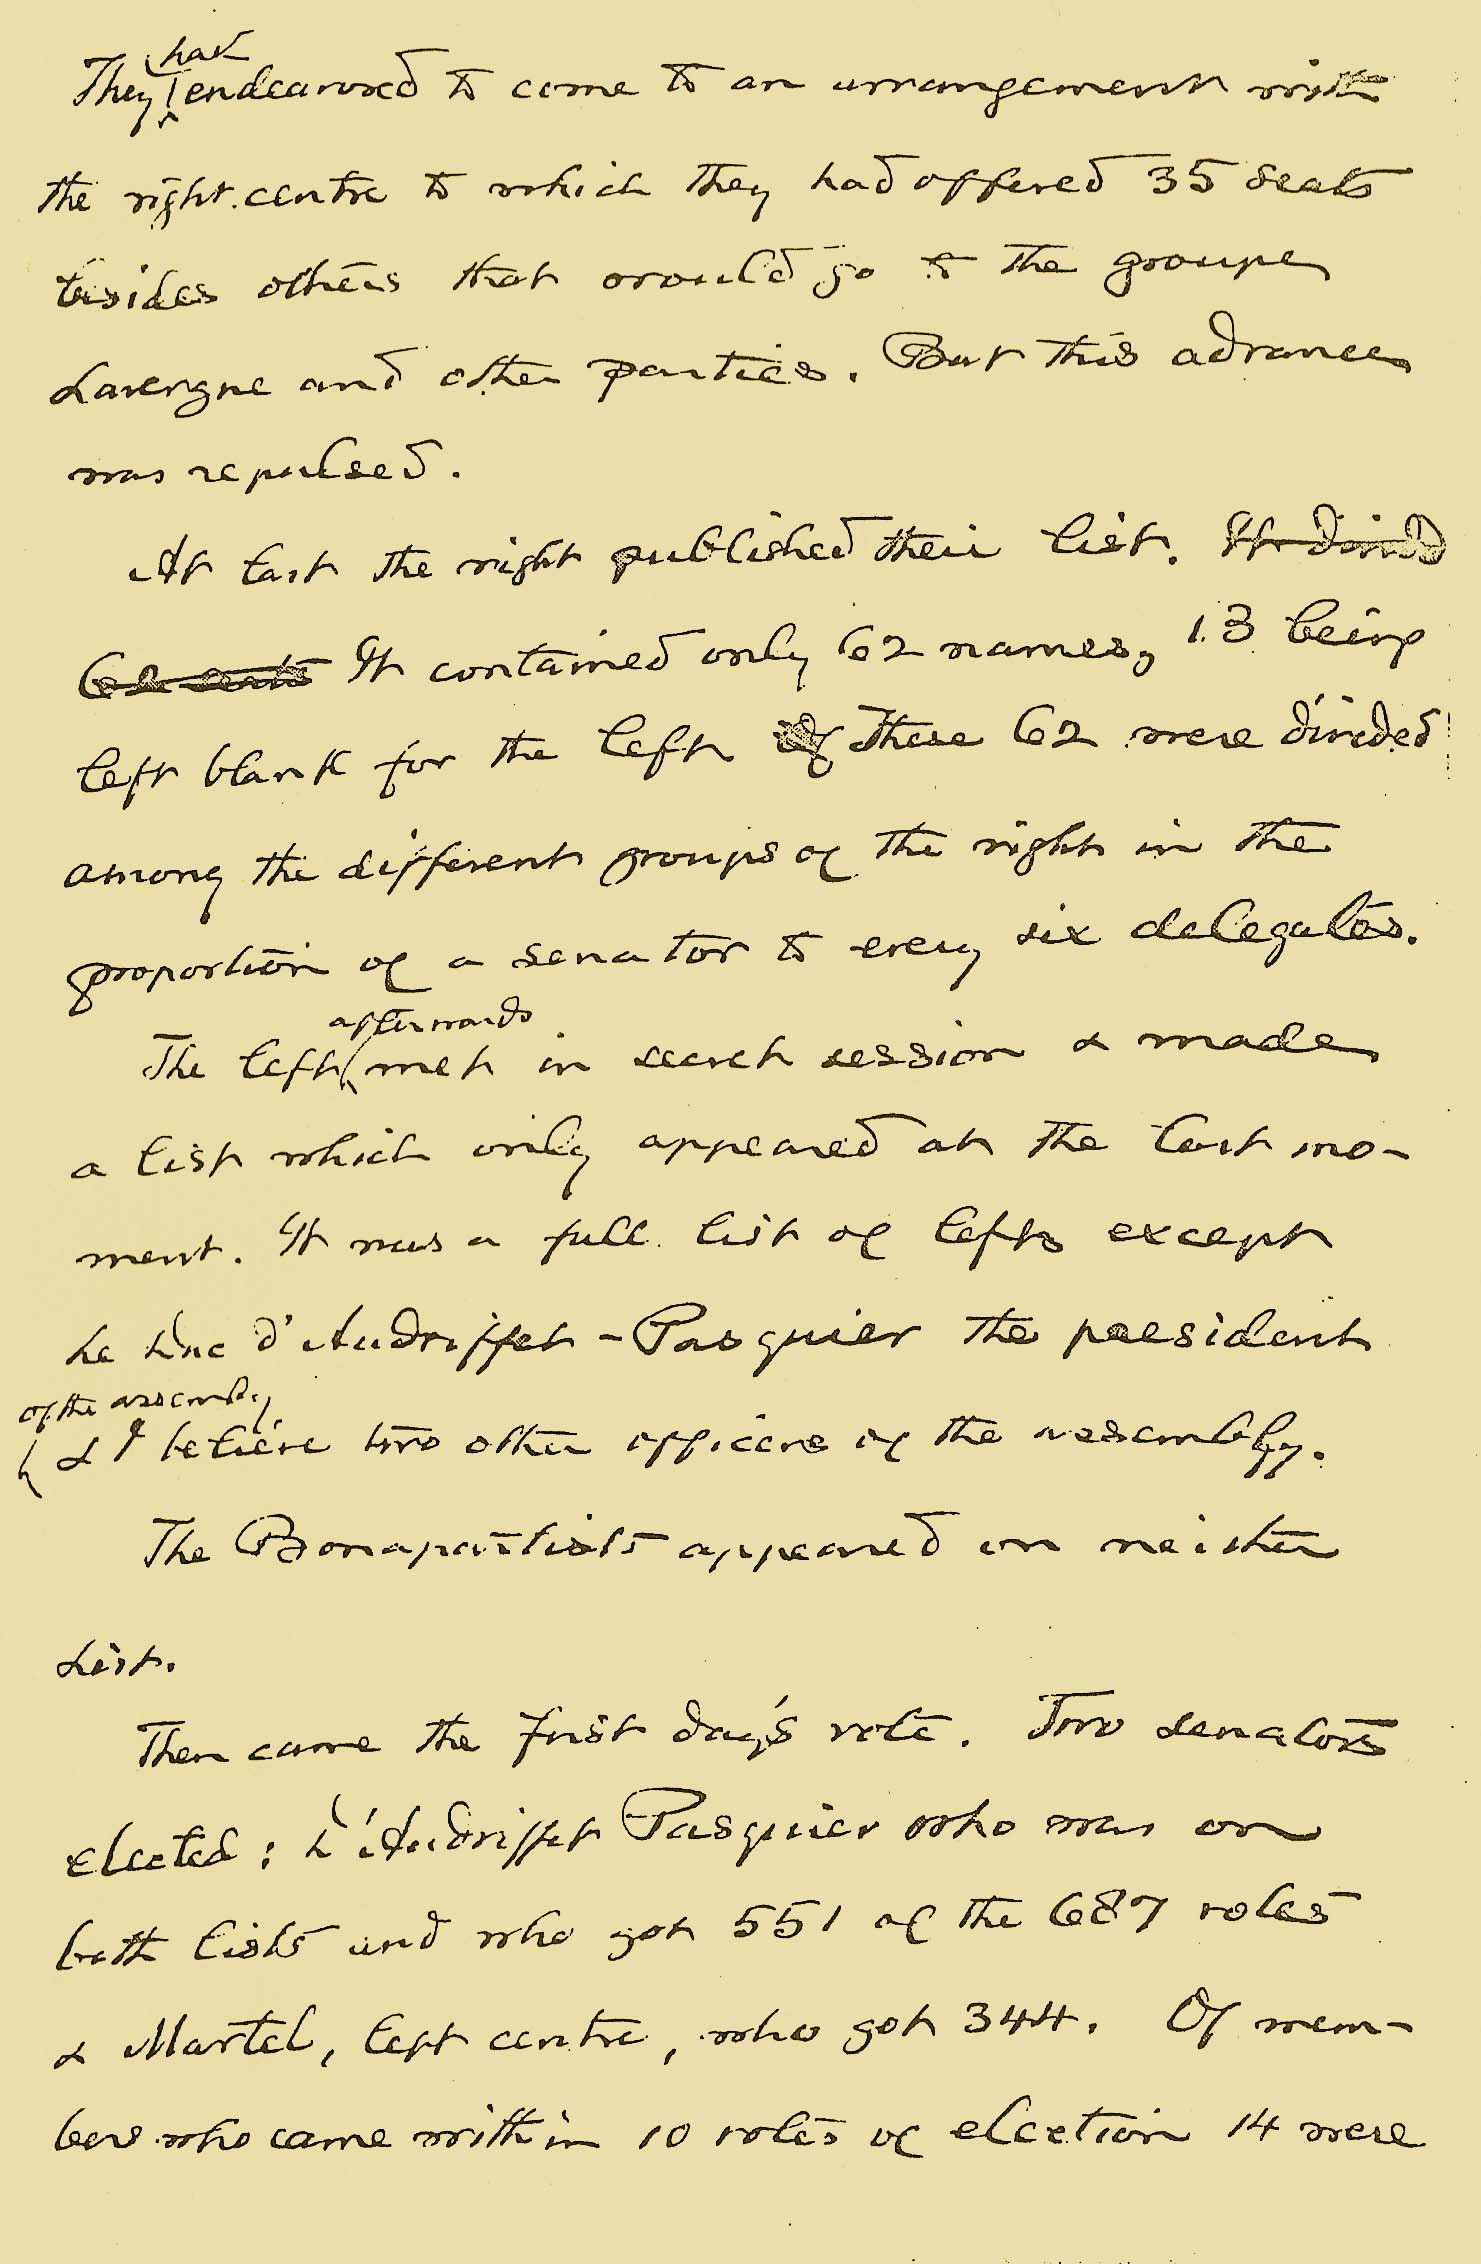 They had endeavored to come to an arrangement with
the right centre to which they had offered 35 seats
besides others that would go to the groupe
Lavergne and other parties. But this advance
was repulsed.
At last the right published their list. It divided
62 seats It contained only 62 names, 13 being
left blank for the left These 62 were divided
among the different groups of the right in the
proportion of a senator to every six delegates.
The left afterwards met in secret session & made
a list which only appeared at the last mo-
ment. It was a full list of lefts except
Le duc d'Audriffet-Pasquier the president
of the assembly
& I believe two other officers of the assembly.
The Bonapartists appeared on neither
list.
Then came the first day's vote. Two senators
elected: d'Audriffet Pasquier who was on
both lists and who got 551 of the 687 votes
& Martel, left centre, who got 344. Of mem-
bers who came within 10 votes of election 14 were